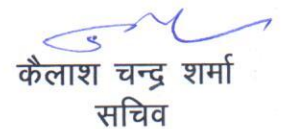 कैलाश चन्द्र शर्मा
सचिव